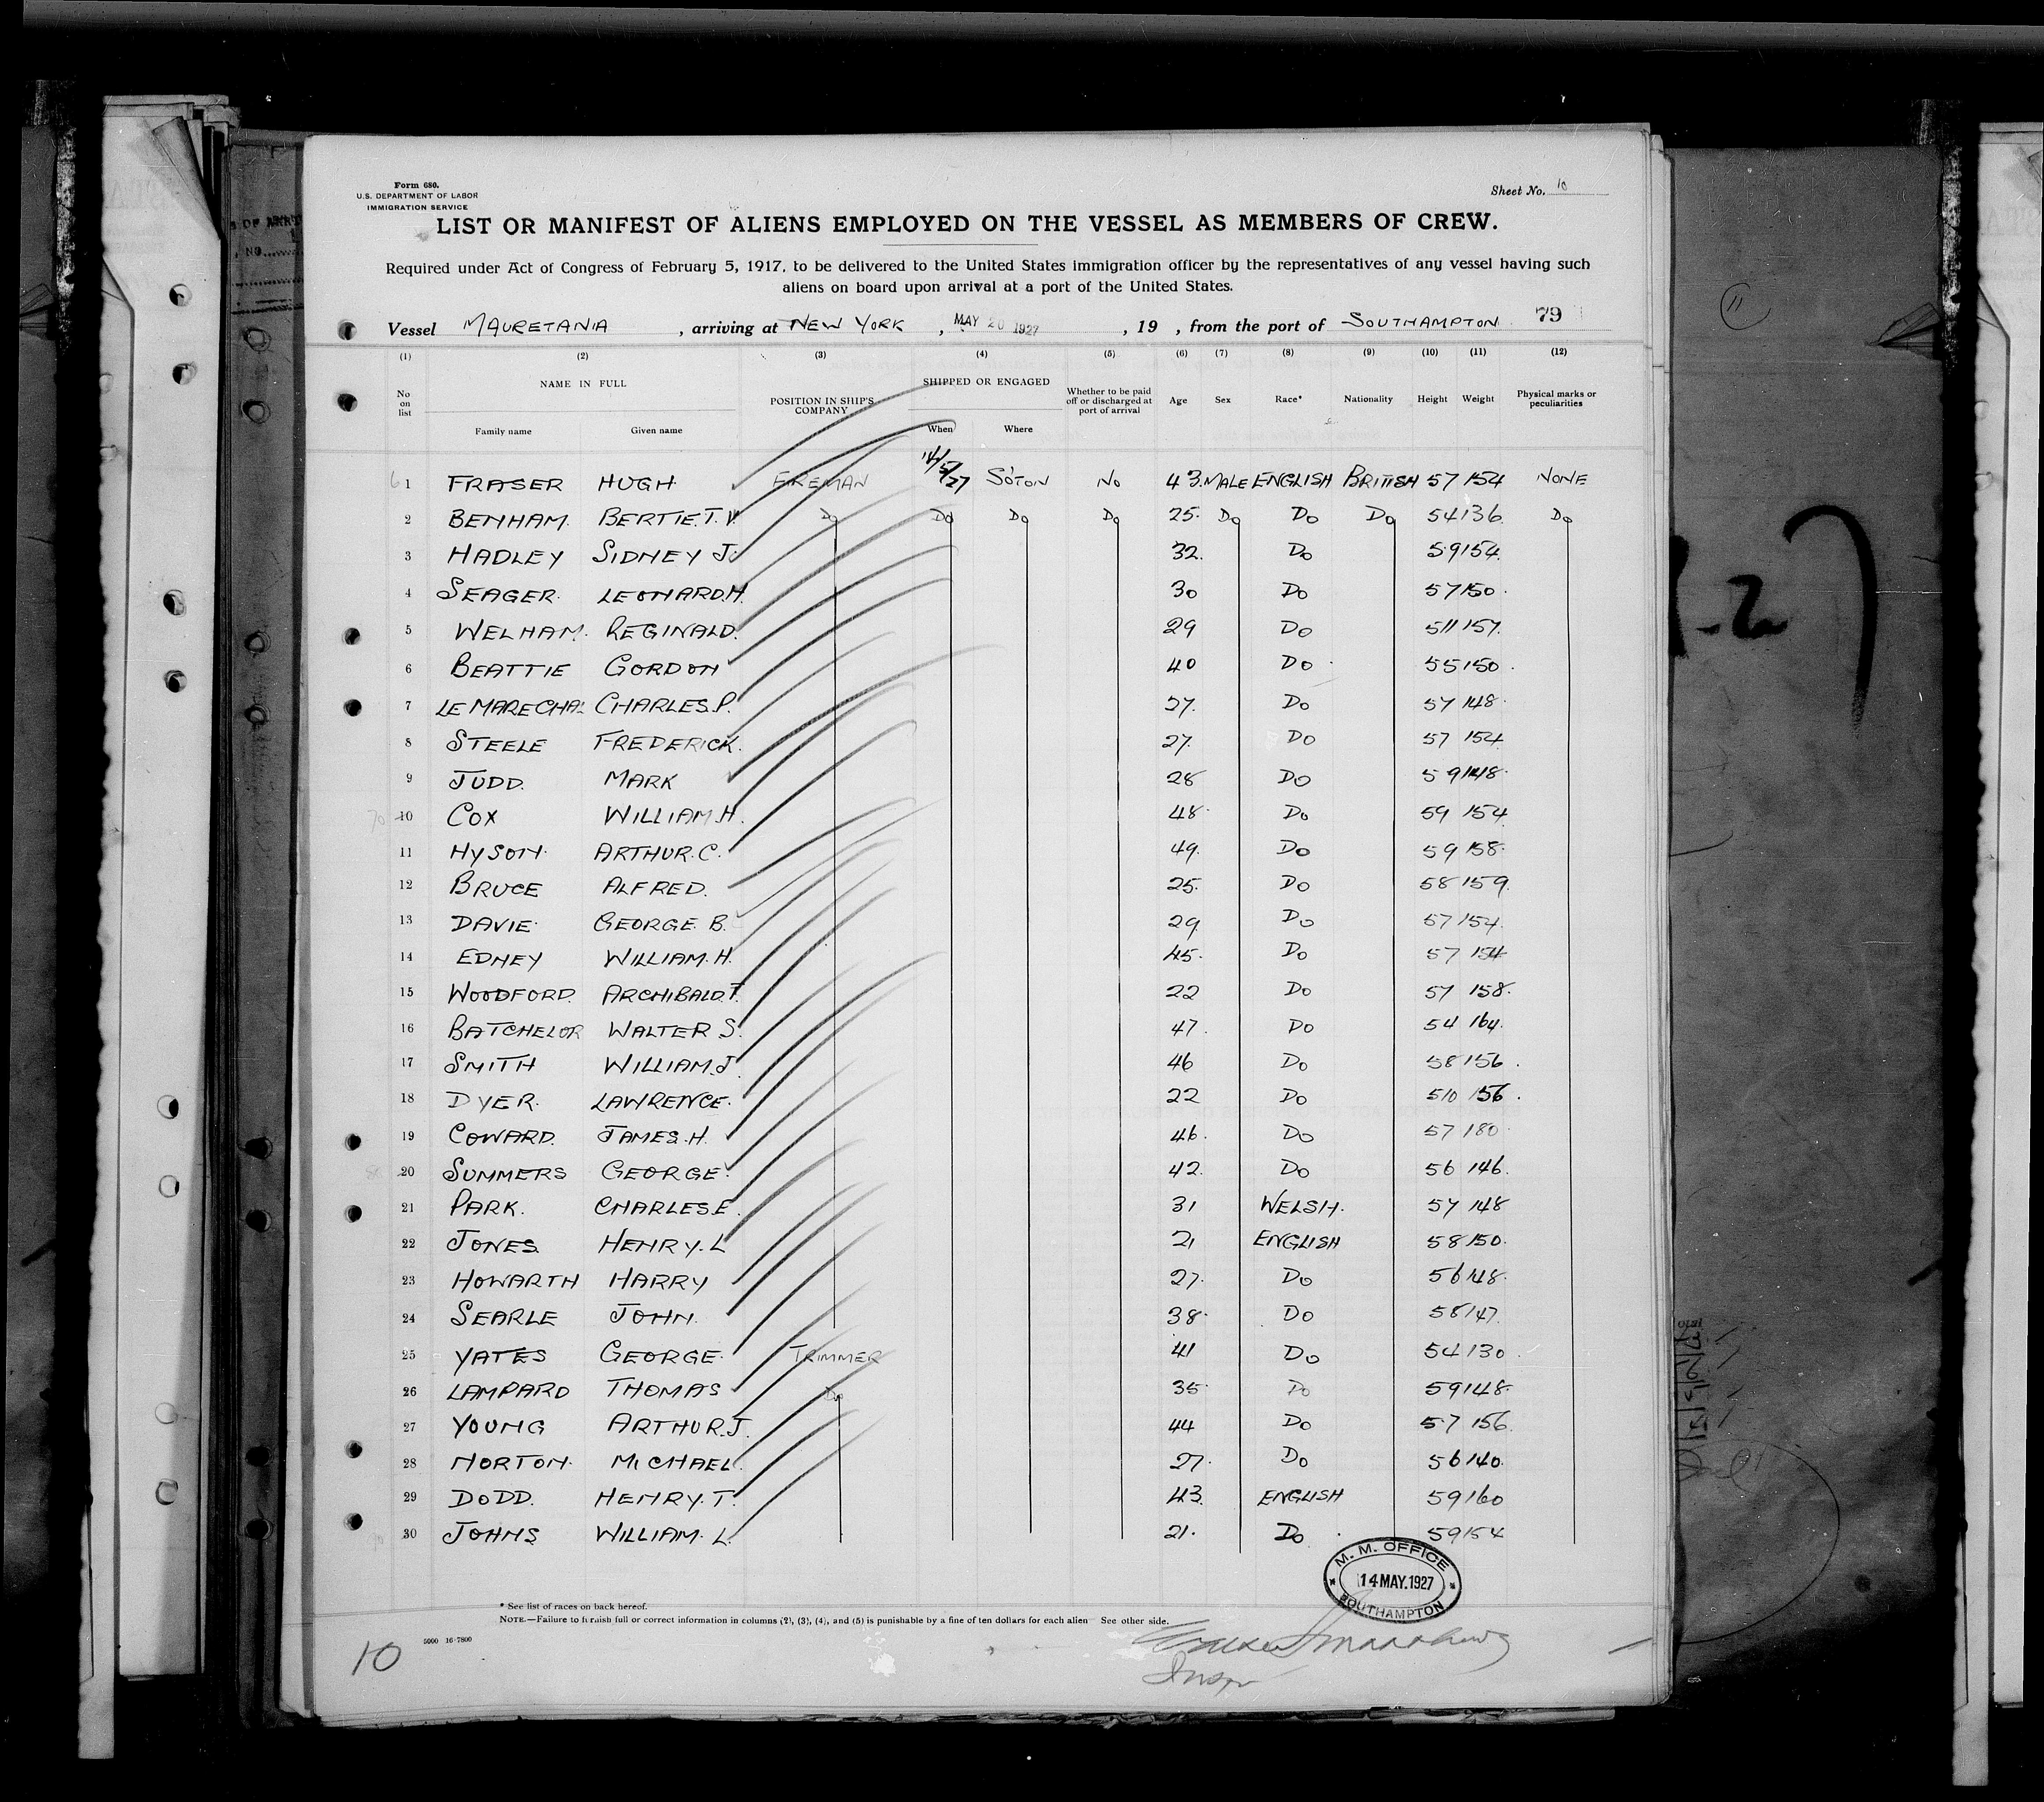 Form 680.
U.S. DEPARTMENT OF LABOR
IMMIGRATION SERVICE
Sheet No. 10
LIST OR MANIFEST OF ALIENS EMPLOYED ON THE VESSEL AS MEMBERS OF CREW.
Required under Act of Congress of February 5, 1917, to be delivered to the United States immigration officer by the representatives of any vessel having such
aliens on board upon arrival at a port of the United States.
Vessel MAURETANIA, arriving at NEW YORK, MAY 20 1927, 19 , from the port of SOUTHAMPTON 79
(1) (2) (3) (4) (5) (6) (7) (8) (9) (10) (11) (12)
No on list NAME IN FULL Family name Given name POSITION IN SHIP'S COMPANY SHIPPED OR ENGAGED When Where Whether to be paid off or discharged at port of arrival Age Sex Race* Nationality Height Weight Physical marks or peculiarities
1 FRASER HUGH FIREMAN 14/5/27 S'OTON NO 43. MALE ENGLISH BRITISH 57 154 NONE
2 BENHAM. BERTIE.T.V. Do Do Do Do 25. Do Do Do 54 136. Do
3 HADLEY SIDNEY J. 32. Do 59 154.
4 SEAGER. LEONARD.H. 30 Do 57 150.
5 WELHAM. REGINALD. 29 Do 511 157.
6 BEATTIE GORDON 40 Do 55 150.
7 LE MARECHAL CHARLES.P. 27. Do 57 148.
8 STEELE FREDERICK. 27. Do 57 154
9 JUDD. MARK 28 Do 59 148.
10 COX WILLIAM.H. 48. Do 59 154
11 HYSON. ARTHUR.C. 49. Do 59 158.
12 BRUCE ALFRED. 25. Do 58 159.
13 DAVIE. GEORGE. B. 29 Do 57 154.
14 EDNEY WILLIAM.H. 45. Do 57 154
15 WOODFORD. ARCHIBALD.F. 22 Do 57 158.
16 BATCHELOR WALTER S. 47. Do 54 164.
17 SMITH WILLIAM.J. 46 Do 58 156.
18 DYER. LAWRENCE. 22 Do 510 156.
19 COWARD. JAMES.H. 46. Do 57 180.
20 SUMMERS GEORGE. 42. Do 56 146.
21 PARK. CHARLES.E. 31 WELSH. 57 148
22 JONES HENRY.L 21 ENGLISH 58 150.
23 HOWARTH HARRY 27. Do 56 148.
24 SEARLE JOHN. 38. Do 58 147.
25 YATES GEORGE. TRIMMER 41 Do 54 130.
26 LAMPARD THOMAS Do 35 Do 59 148.
27 YOUNG ARTHUR.J. 44 Do 57 156.
28 NORTON. MICHAEL. 27. Do 56 140.
29 DODD. HENRY.T. 43. ENGLISH 59 160
30 JOHNS WILLIAM. L. 21. Do 59 154
M. M. OFFICE
14 MAY. 1927
SOUTHAMPTON
* See list of races on back hereof.
NOTE.—Failure to furnish full or correct information in columns (2), (3), (4), and (5) is punishable by a fine of ten dollars for each alien See other side.
5000 16-7800
10
Inspr
11